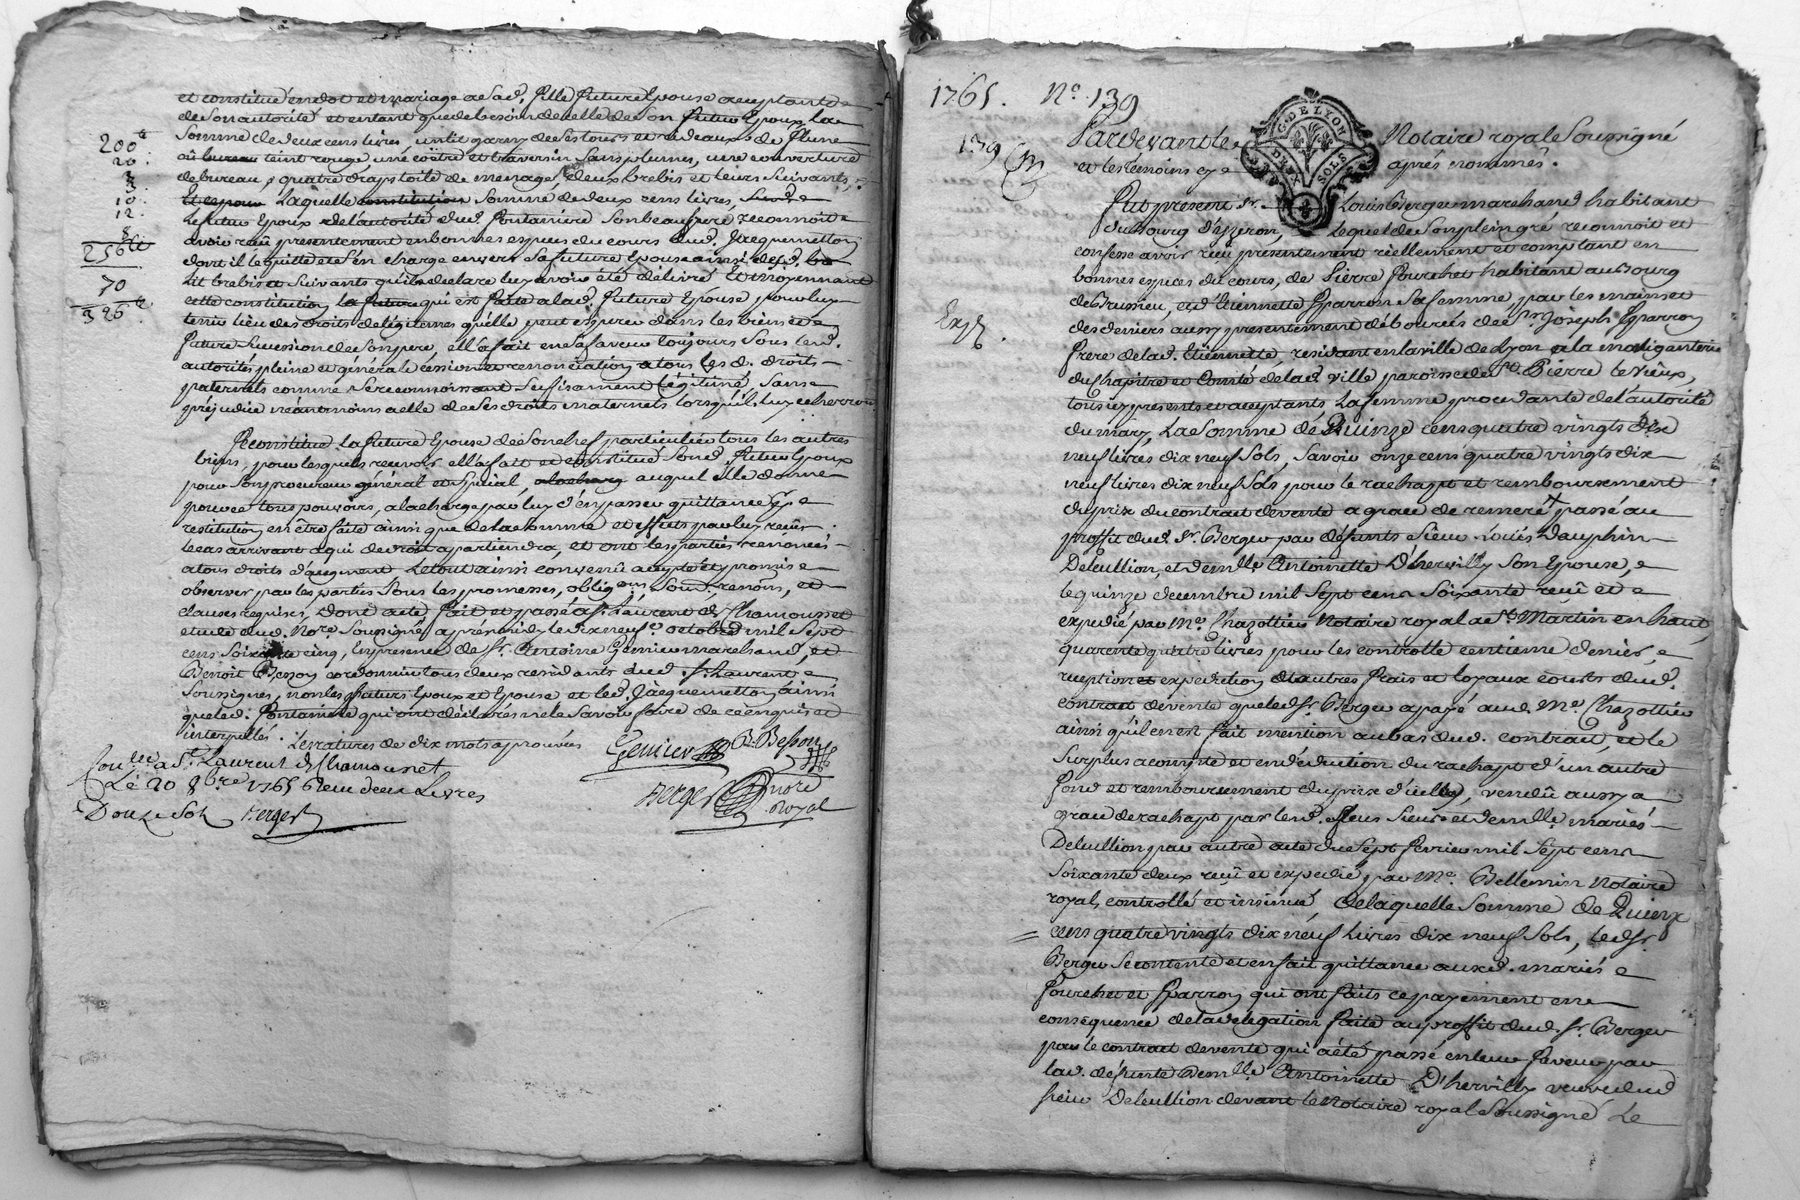 et constitué en dot et mariage a Sad. fille future Epouse acceptante
de Son autorité et entant que de besoin de celle de Son futur Epoux La
Somme de deux cens livres, un lit garny de Ses tours et rideaux de filure
ou bureau teint rouge une coëtre et traversin Sans plumes, une couverture
de bureau, quatre draps toile de menage, deux brebis et leurs Suivants,
Laquelle constitution Somme de deux cens livres,
Le futur Epoux de l'autorité dud. fontaniere Son beau pere reconnoit
avoir reçu presentement en bonnes especes du cours dud. Jacquemetton
dont il le quitte et S'en charge envers Sa future Epouse ainsi desd.
Lit brebis et Suivants qu'ils declare luy avoir été delivré Et moyennant
cette constitution qui est faite a lad. future Epouse, pour luy
tenir lieu des droits de légitemes qu'elle peut esperer dans les biens et
future Succession de Son pere, elle a fait en Sa faveur toujours Sous lesd.
autorités pleine et générale cession et renonciation a tous les d. droits
paternels comme Se reconnoissant Suffisament légitimé, Sans
préjudice néantmoins a elle de Ses droits maternels lorsqu'ils luy echerront
Se constitue La future Epouse de Son chef particulier tous les autres
biens, pour lesquels recevoir elle a fait et constitué Sond. futur Epoux
pour Son procureur général et Spécial, auquel elle donne
pouvoir tous pouvoirs, a la charge par luy d'en passer quittance
restitution en être faite ainsi que de la Somme et effets par luy reçus
le cas arrivant a qui de droit apartiendra, et ont les parties renoncés
a tous droits d'augment Le tout ainsi convenu accepté et promis
observer par les parties Sous les promesses, oblig.ons Soum. renons, et
clauses requises, dont acte fait et passé a St. Laurent de Chamousset
etude dud. Nore. Sousigné, après midy le dix neuf. octobre mil Sept
cens Soixante cinq, En presence de Sr. Antoine Genier marchand, et
Benoit Besson cordonnier tous deux residants aud. St. Laurent
Soussignes, non les futurs Epoux et Epouse et led. Jacquemetton ainsi
que led. fontaniere qui ont déclarés ne le Savoir faire de ce enquis et
interpellés. Les ratures de dix mots aprouvées
Genier B. Besson
Berger nore royal
Con.llé a St. Laurent de Chamousset
Le 20 8bre. 1765 Reçu deux Livres
Douze Sols Berger
200 lt
20.
3
3.
10.
12.
8
256 lt
70
326 lt
1765. No. 139
139
Expé.
G. DE LYON
DEUX SOLS
Pardevant le Notaire royal Soussigné
et les temoins cy après nommés.
Fut present Sr. Louis Berger marchand habitant
du bourg d'yzeron, Lequel de Son plein gré reconnoit et
confesse avoir reçu presentement réellement et comptant en
bonnes espèces du cours, de Pierre Pourchet habitant au Bourg
de Brussieu, et d'Etiennette Sparron Sa femme, par les mains et
des deniers aussy presentement débourcés de Sr. Joseph Sparron
frere de lad. Etiennette, residant en la ville de Lyon a la
du Chapitre et Comté de lad. ville paroisse de St. Pierre le Vieux,
tous icy presents et acceptants, La femme procedante de l'autorité
du mary, La Somme de Quinze cens quatre vingts dix
neuf livres dix neuf Sols, Savoir onze cens quatre vingts dix
neuf livres dix neuf Sols pour le rachapt et remboursement
du prix du contrat de vente a grace de remeré passé au
proffit dud. Sr. Berger par défunts Sieur Louis Dauphin
Deleullion, et demlle. Antoinette D'hervilly Son Epouse,
le quinze decembre mil Sept cens Soixante reçu et
expedié par Me. Chazottier Notaire royal a St. Martin en haut,
quarente quatre livres pour les controlle centieme denier,
reception et expedition et autres frais et loyaux couts dud.
contrat de vente que led Sr. Berger a payé aud. Me. Chazottier
ainsi qu'il en est fait mention au bas dud. contrat, et le
Surplus a compte et en déduction du rachapt d'un autre
fond et remboursement du prix d'icelluy, vendu aussy a
grace de rachapt par lesd. feus Sieur et demlle. mariés
Deleullion par autre acte du Sept fevrier mil Sept cens
Soixante deux reçu et expedié par Me. Bellemin Notaire
royal, controllé et insinué, de laquelle Somme de Quinze
cens quatre vingts dix neuf Livres dix neuf Sols, led. Sr.
Berger Se contente et en fait quittance auxd. mariés
Pourchet et Sparron qui ont faits ce payement en
conséquence de la délégation faite au proffit dud. Sr. Berger
par le contrat de vente qui a été passé en leur faveur par
lad. défunte demlle. Antoinette D'hervilly veuve dud
Sieur Deleullion devant le Notaire royal Soussigné Le